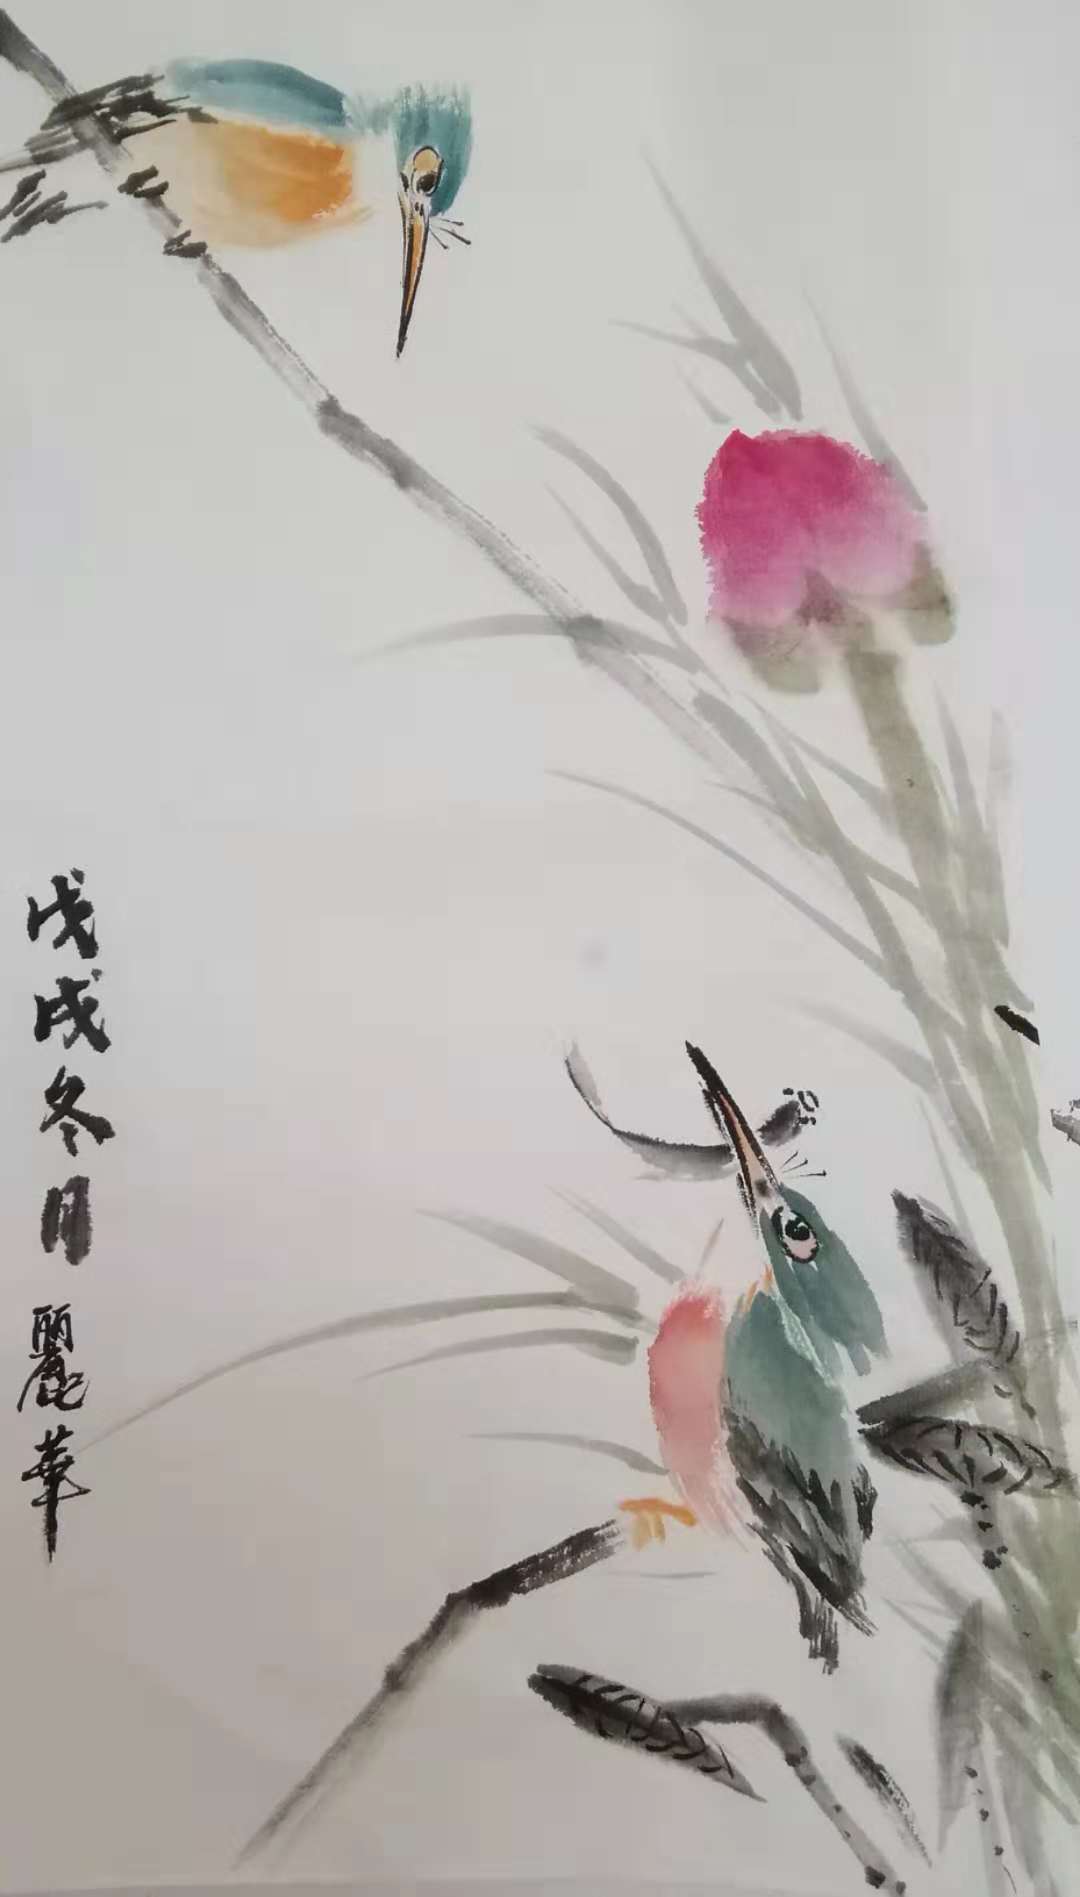 戊戌冬月麗華